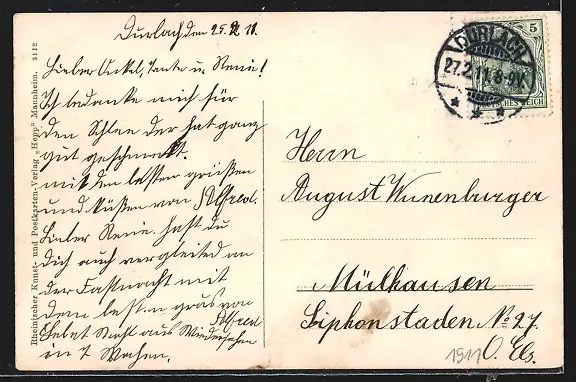 Durlach den 25. 2. 11.
Lieber Onkel, Tante u. René!
Ich bedanke mich für
den Schlen der hat ganz
gut geschmekt.
mit den besten grüßen
und küßen von Alfred.
Lieber Rene. hast du
dich auch vergleited an
der Fastnacht mit
dem besten grus von
Alfred
Lebet Wohl auf Wiedersehen
in 7 Wochen.
Rheinischer Kunst- und Postkarten-Verlag „Hepp" Mannheim. 3112
5
DURLACH
27.2.11. 8-9V.
DEUTSCHES REICH
Herrn
August Wunenburger
Mülhausen
Siphonstaden No 27.
O. Els.
1911